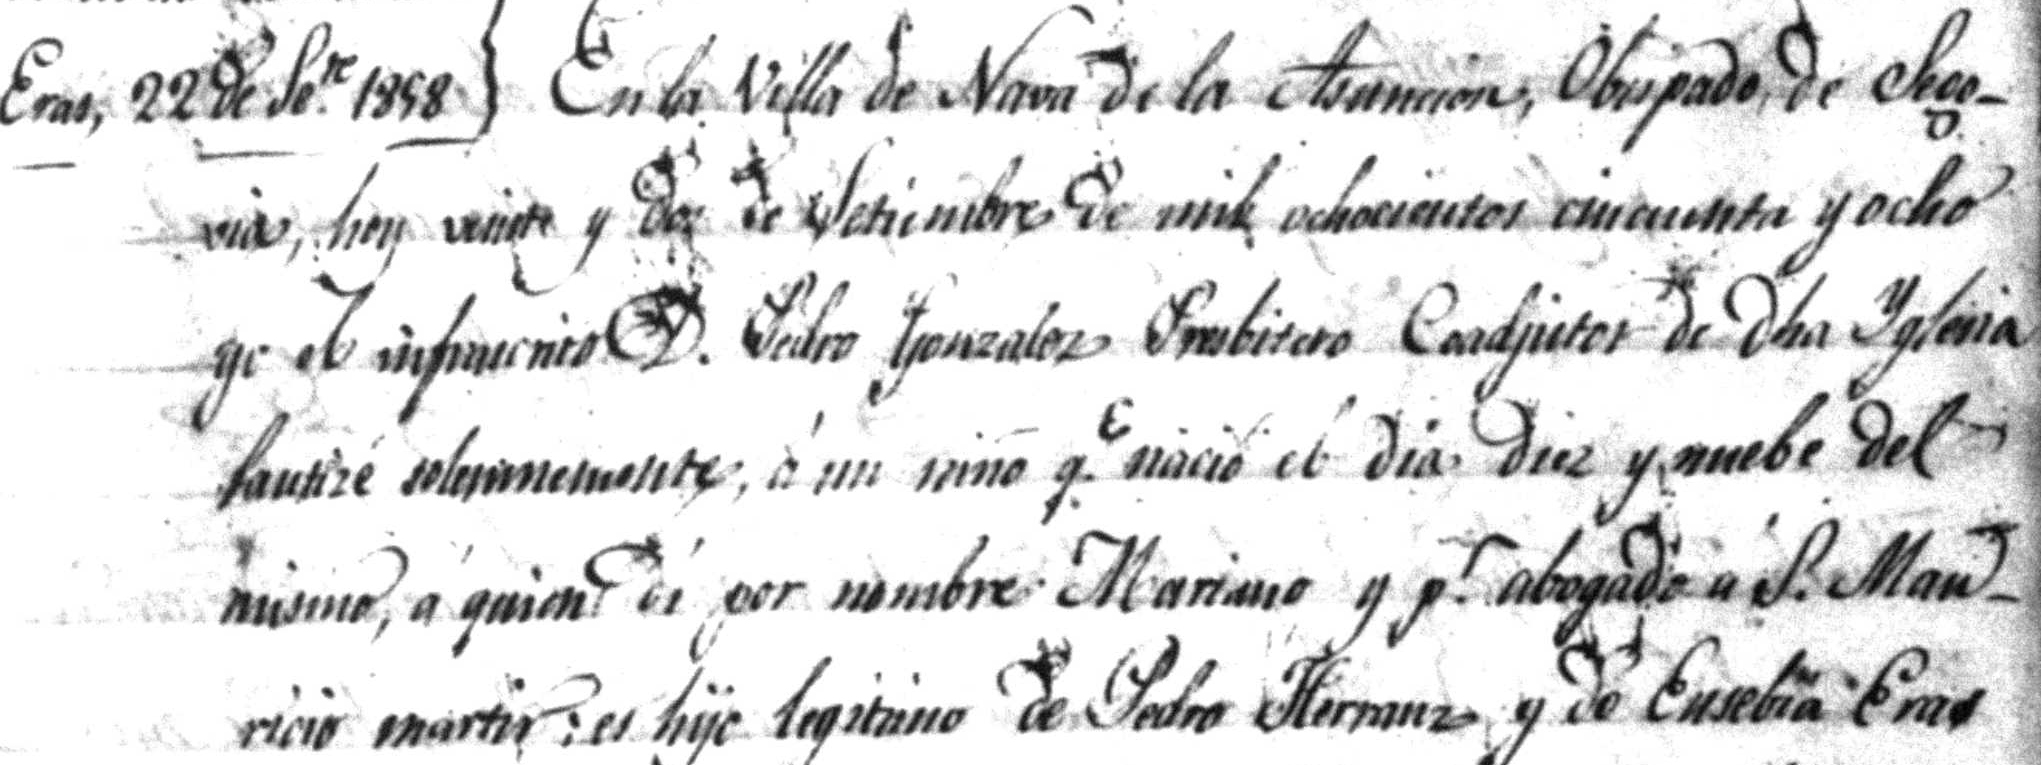 Eras, 22 de Se.re 1858 } En la Villa de Nava de la Asuncion, Obispado, de Sego-
via, hoy veinte y dos de Setiembre de mil ochocientos cincuenta y ocho
yo el infrascrito D. Pedro Gonzalez Presbitero Coadjutor de dha Yglesia
bautizé solemnemente, á un niño q.e nació el dia diez y nuebe del
mismo, á quien dí por nombre Mariano y p.r abogado a S. Mau-
ricio martir: es hijo legitimo de Pedro Herranz y de Eusebia Eras